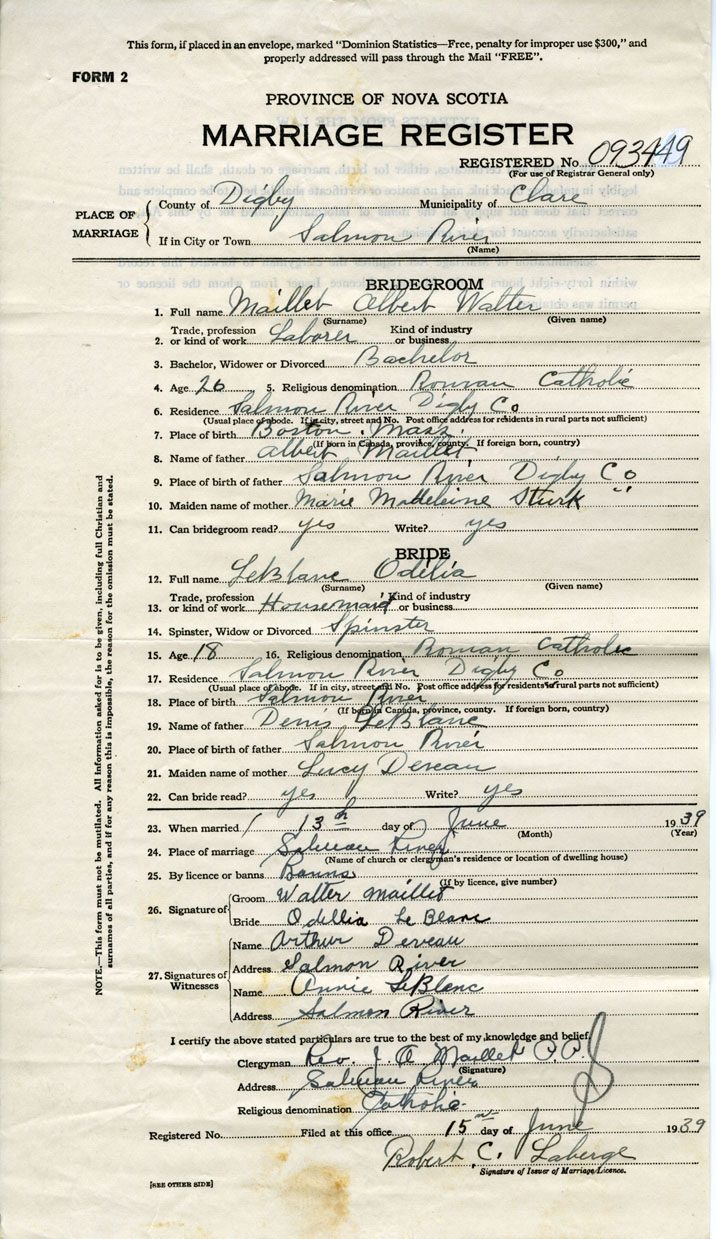 This form, if placed in an envelope, marked "Dominion Statistics—Free, penalty for improper use $300," and
properly addressed will pass through the Mail "FREE".
FORM 2
PROVINCE OF NOVA SCOTIA
MARRIAGE REGISTER
REGISTERED No. 093449
(For use of Registrar General only)
PLACE OF MARRIAGE
County of Digby Municipality of Clare
If in City or Town Salmon River
(Name)
BRIDEGROOM
1. Full name Maillet Albert Walter
(Surname) (Given name)
2. Trade, profession or kind of work Laborer Kind of industry or business
3. Bachelor, Widower or Divorced Bachelor
4. Age 26 5. Religious denomination Roman Catholic
6. Residence Salmon River Digby Co
(Usual place of abode. If in city, street and No. Post office address for residents in rural parts not sufficient)
7. Place of birth Boston, Mass.
(If born in Canada, province, county. If foreign born, country)
8. Name of father Albert Maillet
9. Place of birth of father Salmon River Digby Co
10. Maiden name of mother Marie Madeleine Sturk " "
11. Can bridegroom read? yes Write? yes
BRIDE
12. Full name LeBlanc Odelia
(Surname) (Given name)
13. Trade, profession or kind of work Housemaid Kind of industry or business
14. Spinster, Widow or Divorced Spinster
15. Age 18 16. Religious denomination Roman Catholic
17. Residence Salmon River Digby Co
(Usual place of abode. If in city, street and No. Post office address for residents in rural parts not sufficient)
18. Place of birth Salmon River
(If born in Canada, province, county. If foreign born, country)
19. Name of father Denis LeBlanc
20. Place of birth of father Salmon River
21. Maiden name of mother Lucy Deveau
22. Can bride read? yes Write? yes
23. When married 13th day of June 1939
(Month) (Year)
24. Place of marriage Salmon River
(Name of church or clergyman's residence or location of dwelling house)
25. By licence or banns Banns
(If by licence, give number)
26. Signature of
Groom Walter Maillet
Bride Odellia Le Blanc
27. Signatures of Witnesses
Name Arthur Deveau
Address Salmon River
Name Annie LeBlanc
Address Salmon River
I certify the above stated particulars are true to the best of my knowledge and belief.
Clergyman Rev. J. A Maillet P.P.
(Signature)
Address Salmon River
Religious denomination Catholic
Registered No. Filed at this office 15 day of June 1939
Robert C. Laberge
Signature of Issuer of Marriage Licence.
[SEE OTHER SIDE]
NOTE.—This form must not be mutilated. All information asked for is to be given, including full Christian and
surnames of all parties, and if for any reason this is impossible, the reason for the omission must be stated.